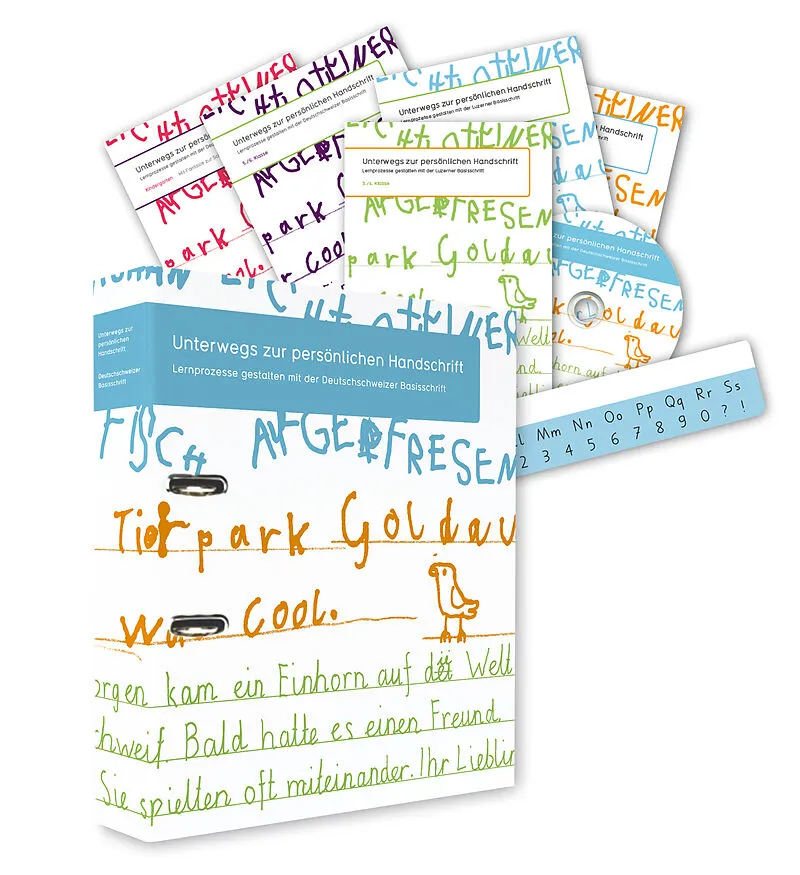 Unterwegs zur persönlichen
Lernprozesse gestalten mit der
Kindergarten
AFGE
park
Unterwegs zur persönlichen Handschrift
Lernprozesse gestalten mit der Deutschschweizer Basisschrift
5./6. Klasse
AFGE
park
cool
Unterwegs zur persönlichen Handschrift
Lernprozesse gestalten mit der Luzerner Basisschrift
Handschrift
Unterwegs zur persönlichen Handschrift
Lernprozesse gestalten mit der Luzerner Basisschrift
3./4. Klasse
AFGERFRESEN
park Goldau
Welt
zur persönlichen Handschrift
mit der Deutschschweizer Basisschrift
AFGERFRESEN
Goldau
Einhorn auf
Mm Nn Oo Pp Qq Rr Ss
2 3 4 5 6 7 8 9 0 ? !
Unterwegs zur
persönlichen
Handschrift
Deutschschweizer
Basisschrift
Unterwegs zur persönlichen Handschrift
Lernprozesse gestalten mit der Deutschschweizer Basisschrift
FISCH AFGERFRESEN
Tierpark Goldau
cool.
orgen kam ein Einhorn auf die Welt
chweif. Bald hatte es einen Freund.
Sie spielten oft miteinander. Ihr Lieblin